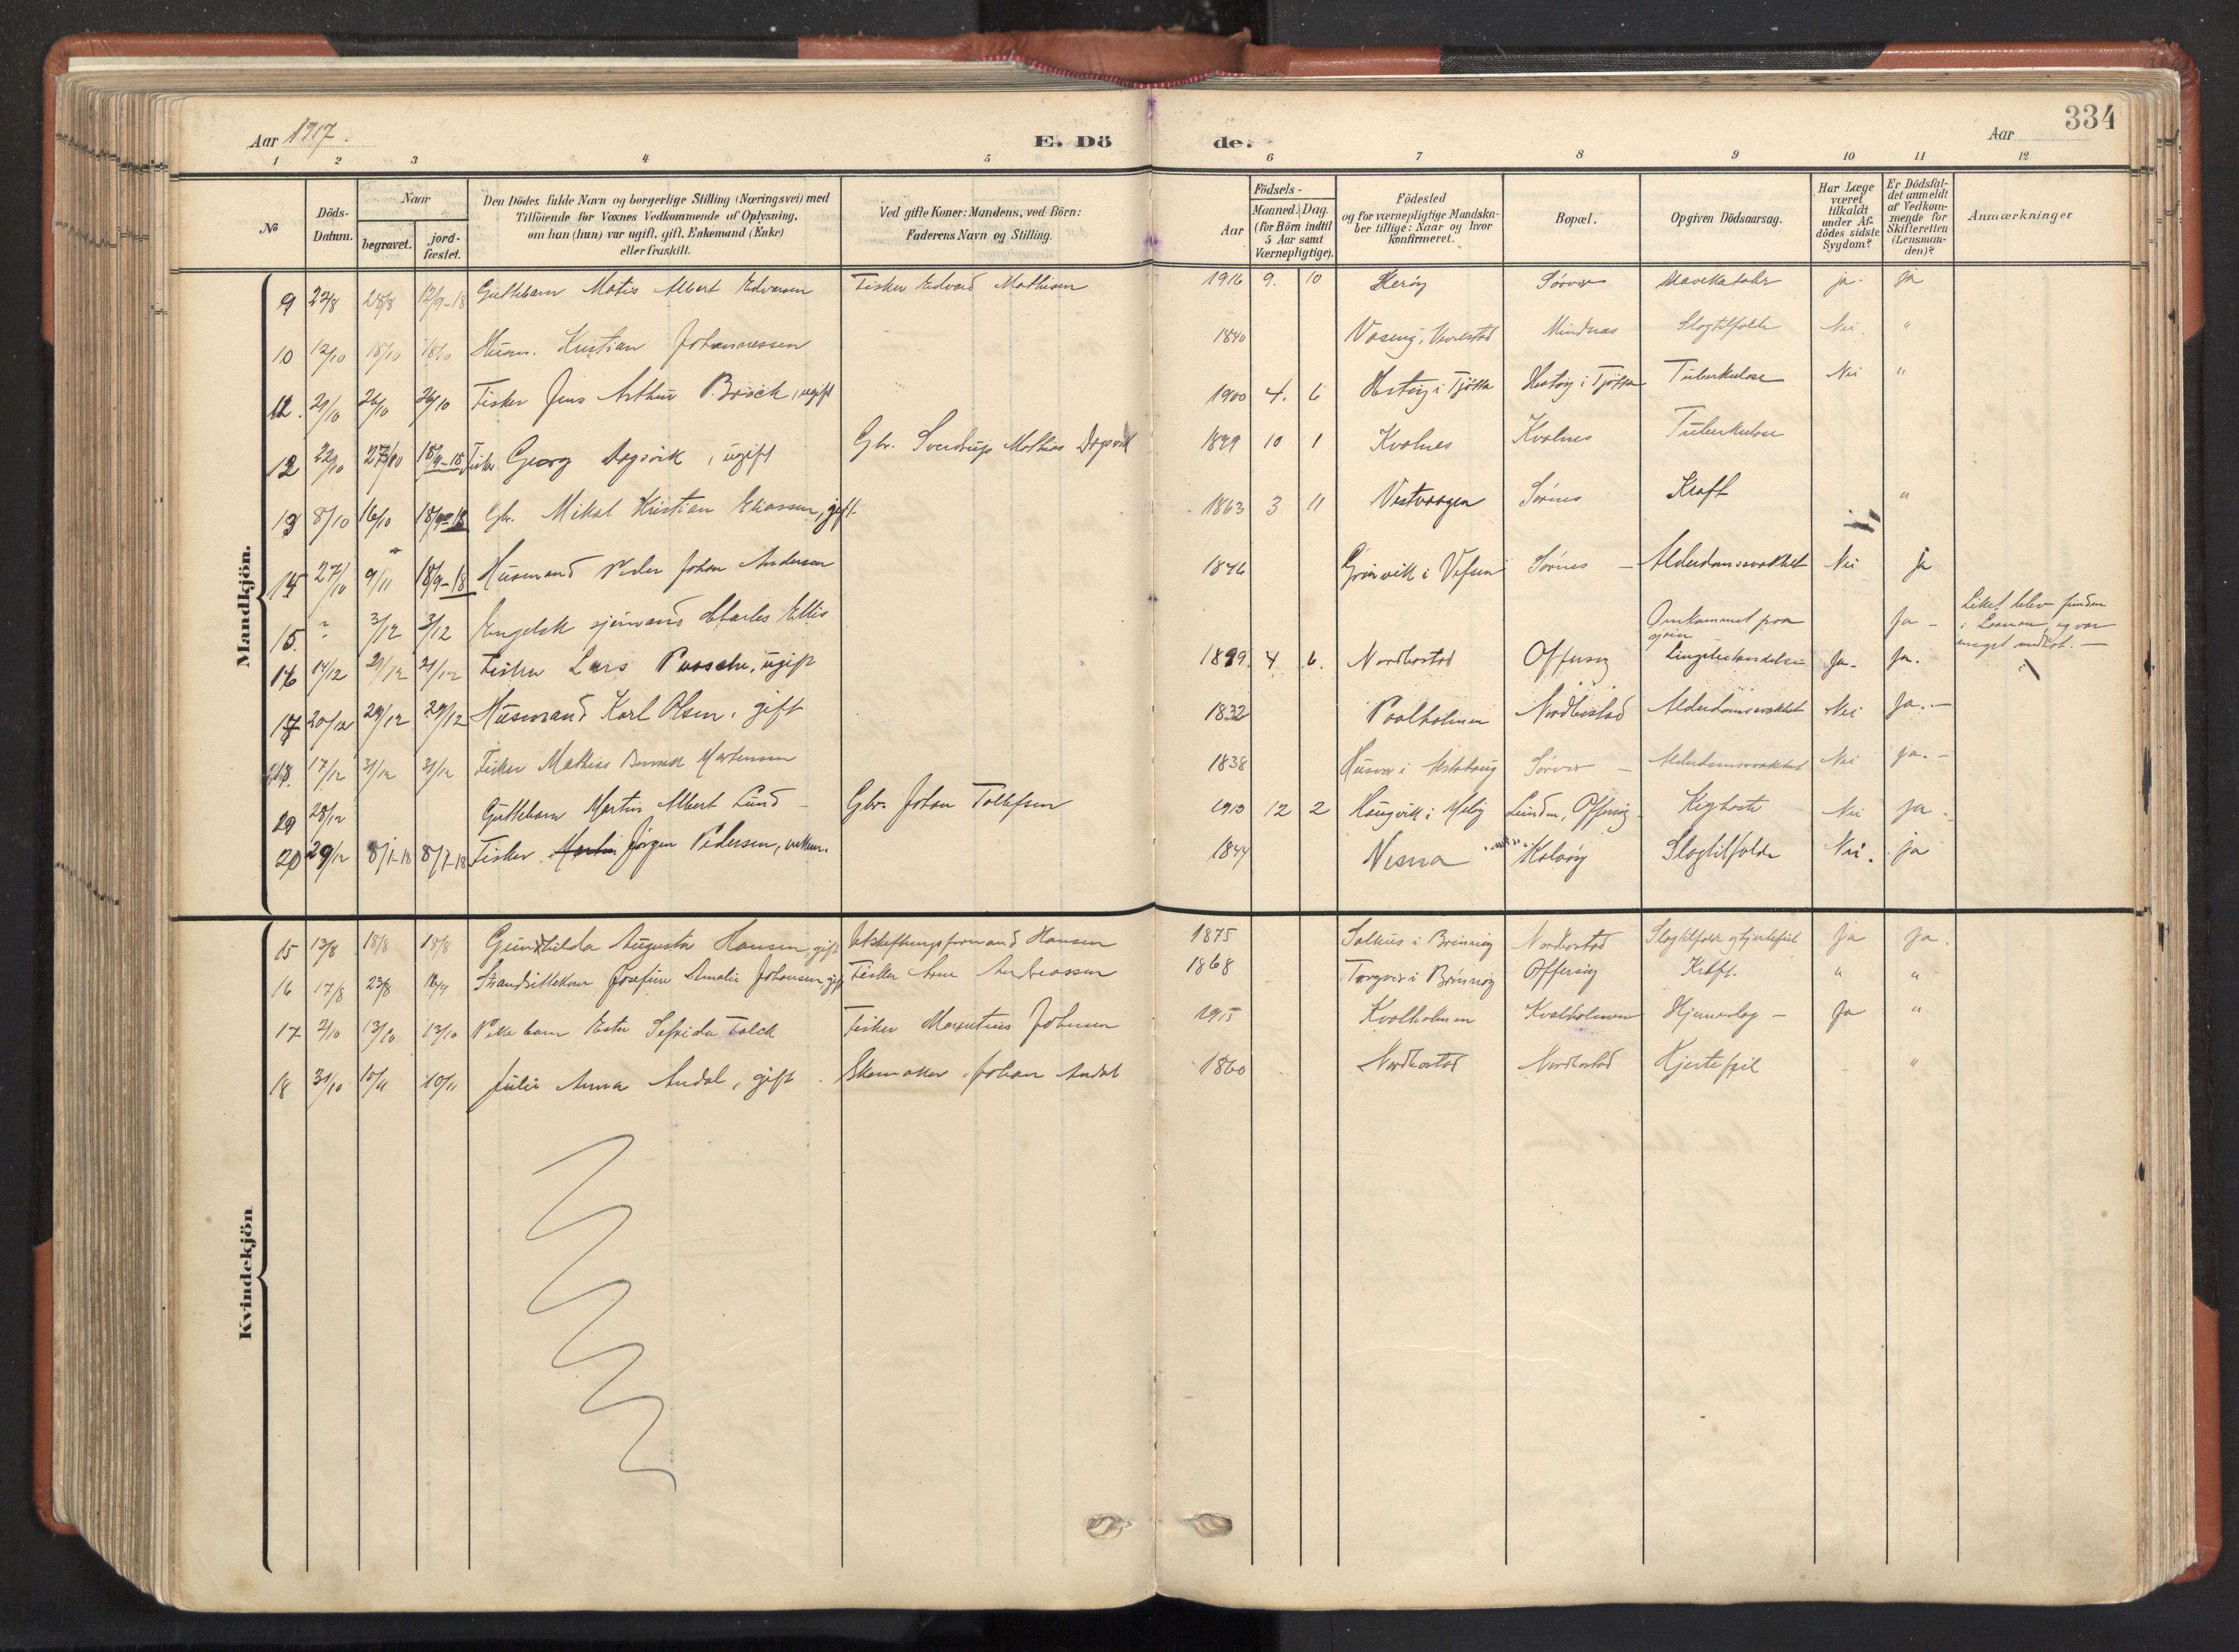 334
Aar 1917.
E. Dö
de.
Aar
1 2 3 4 5 6 7 8 9 10 11 12
No
Döds-Datum.
Naar
begravet.
jord-fæstet.
Den Dödes fulde Navn og borgerlige Stilling (Næringsvei) med
Tilföiende for Voxnes Vedkommende af Oplysning,
om han (hun) var ugift, gift, Enkemand (Enke)
eller fraskilt.
Ved gifte Koner: Mandens, ved Börn:
Faderens Navn og Stilling.
Födsels-
Aar
Maaned. Dag.
(for Börn indtil
5 Aar samt
Værnepligtige).
Födested
og for værnepligtige Mandska-
ber tillige: Naar og hvor
konfirmeret.
Bopæl.
Opgiven Dödsaarsag.
Har Læge
været
tilkaldt
under Af-
dödes sidste
Sygdom?
Er Dödsfal-
det anmeldt
af Vedkom-
mende for
Skifteretten
(Lensman-
den)?
Anmærkninger
Mandkjön.
9 22/8 28/8 12/9-18 Guttebarn Matis Albert Edvarsen Fisker Edvard Mathisen 1916 9. 10 Herøy Sørvær Mavekatahr ja. ja
10 12/10 18/10 18/10 Husm. Kristian Johannessen 1840 Mindnes Slagtilfælde Nei. "
11. 21/10 26/10 26/10 Fisker Jens Arthur P. Brock, ugift 1900 4. 6 Hestøy i Tjøtta Hestøy i Tjøtta Tuberkulose Nei "
12 22/10 27/10 18/9-18 Fisker Georg Dagsvik, ugift Gbr. Sverdrup Mathias Dagsvik 1899 10 1 Kvalnes Kvalnes Tuberkulose
13 8/10 16/10 18/9-18 Gbr. Mikal Kristian Eliassen, gift 1863 3 11 Vestvaagen Sørnes Kræft "
14 27/10 9/11 18/9-18 Husmand Peder Johan Andersen 1846 i Vefsen Sørnes - Alderdomssvakhet Nei ja
15. ? 3/12 3/12 Engelsk sjømand Charles Ellis Omkommet paa sjøen Ja - Liket blev funden i og var meget
16 14/12 21/12 21/12 Fisker Lars Paasche, ugift 1899. 4 6. Nordbostad Offersøy Ja. Ja.
17 20/12 29/12 29/12 Husmand Karl Olsen, gift 1832 Paalholmen Nordbostad Alderdomssvakhet Nei Ja. -
18. 17/12 31/12 31/12 Fisker Mathias Mortensen 1838 Husvær i Alstahaug Sørvær - Alderdomssvakhet Nei ja. -
19 28/12 Guttebarn Martin Albert Lund Gbr. Johan Tollefsen 1913 12 2 Haugvik i Meløy Lunden, Offersøy. Kighoste Nei ja.
20 29/12 8/1-18 8/7-18 Fisker Martin Jørgen Pedersen, enkem. 1844 Nesna Kalvøy Slagtilfælde Nei. ja
Kvindekjön
15 13/8 18/8 18/8 Gunhilda Augusta Hansen, gift Utskiftningsformand Hansen 1875 Salhus i Brønnøy Nordbostad Slagtilfælde og hjertefeil Ja ja.
16 17/8 23/8 Strandsitterkone Josefine Amalie Johansen, gift Fisker Arne Andreassen 1868 Torgvær i Brønnøy Offersøy Kræft. " "
17 2/10 13/10 13/10 Pikebarn Ester Falck Fisker Johnsen 1915 Kvalholmen Kvalholmen Hjerneslag - Ja "
18 31/10 10/11 10/11 Julie Anna Andal, gift. Skomaker Johan Andal 1860 Nordbostad Nordbostad Hjertefeil "